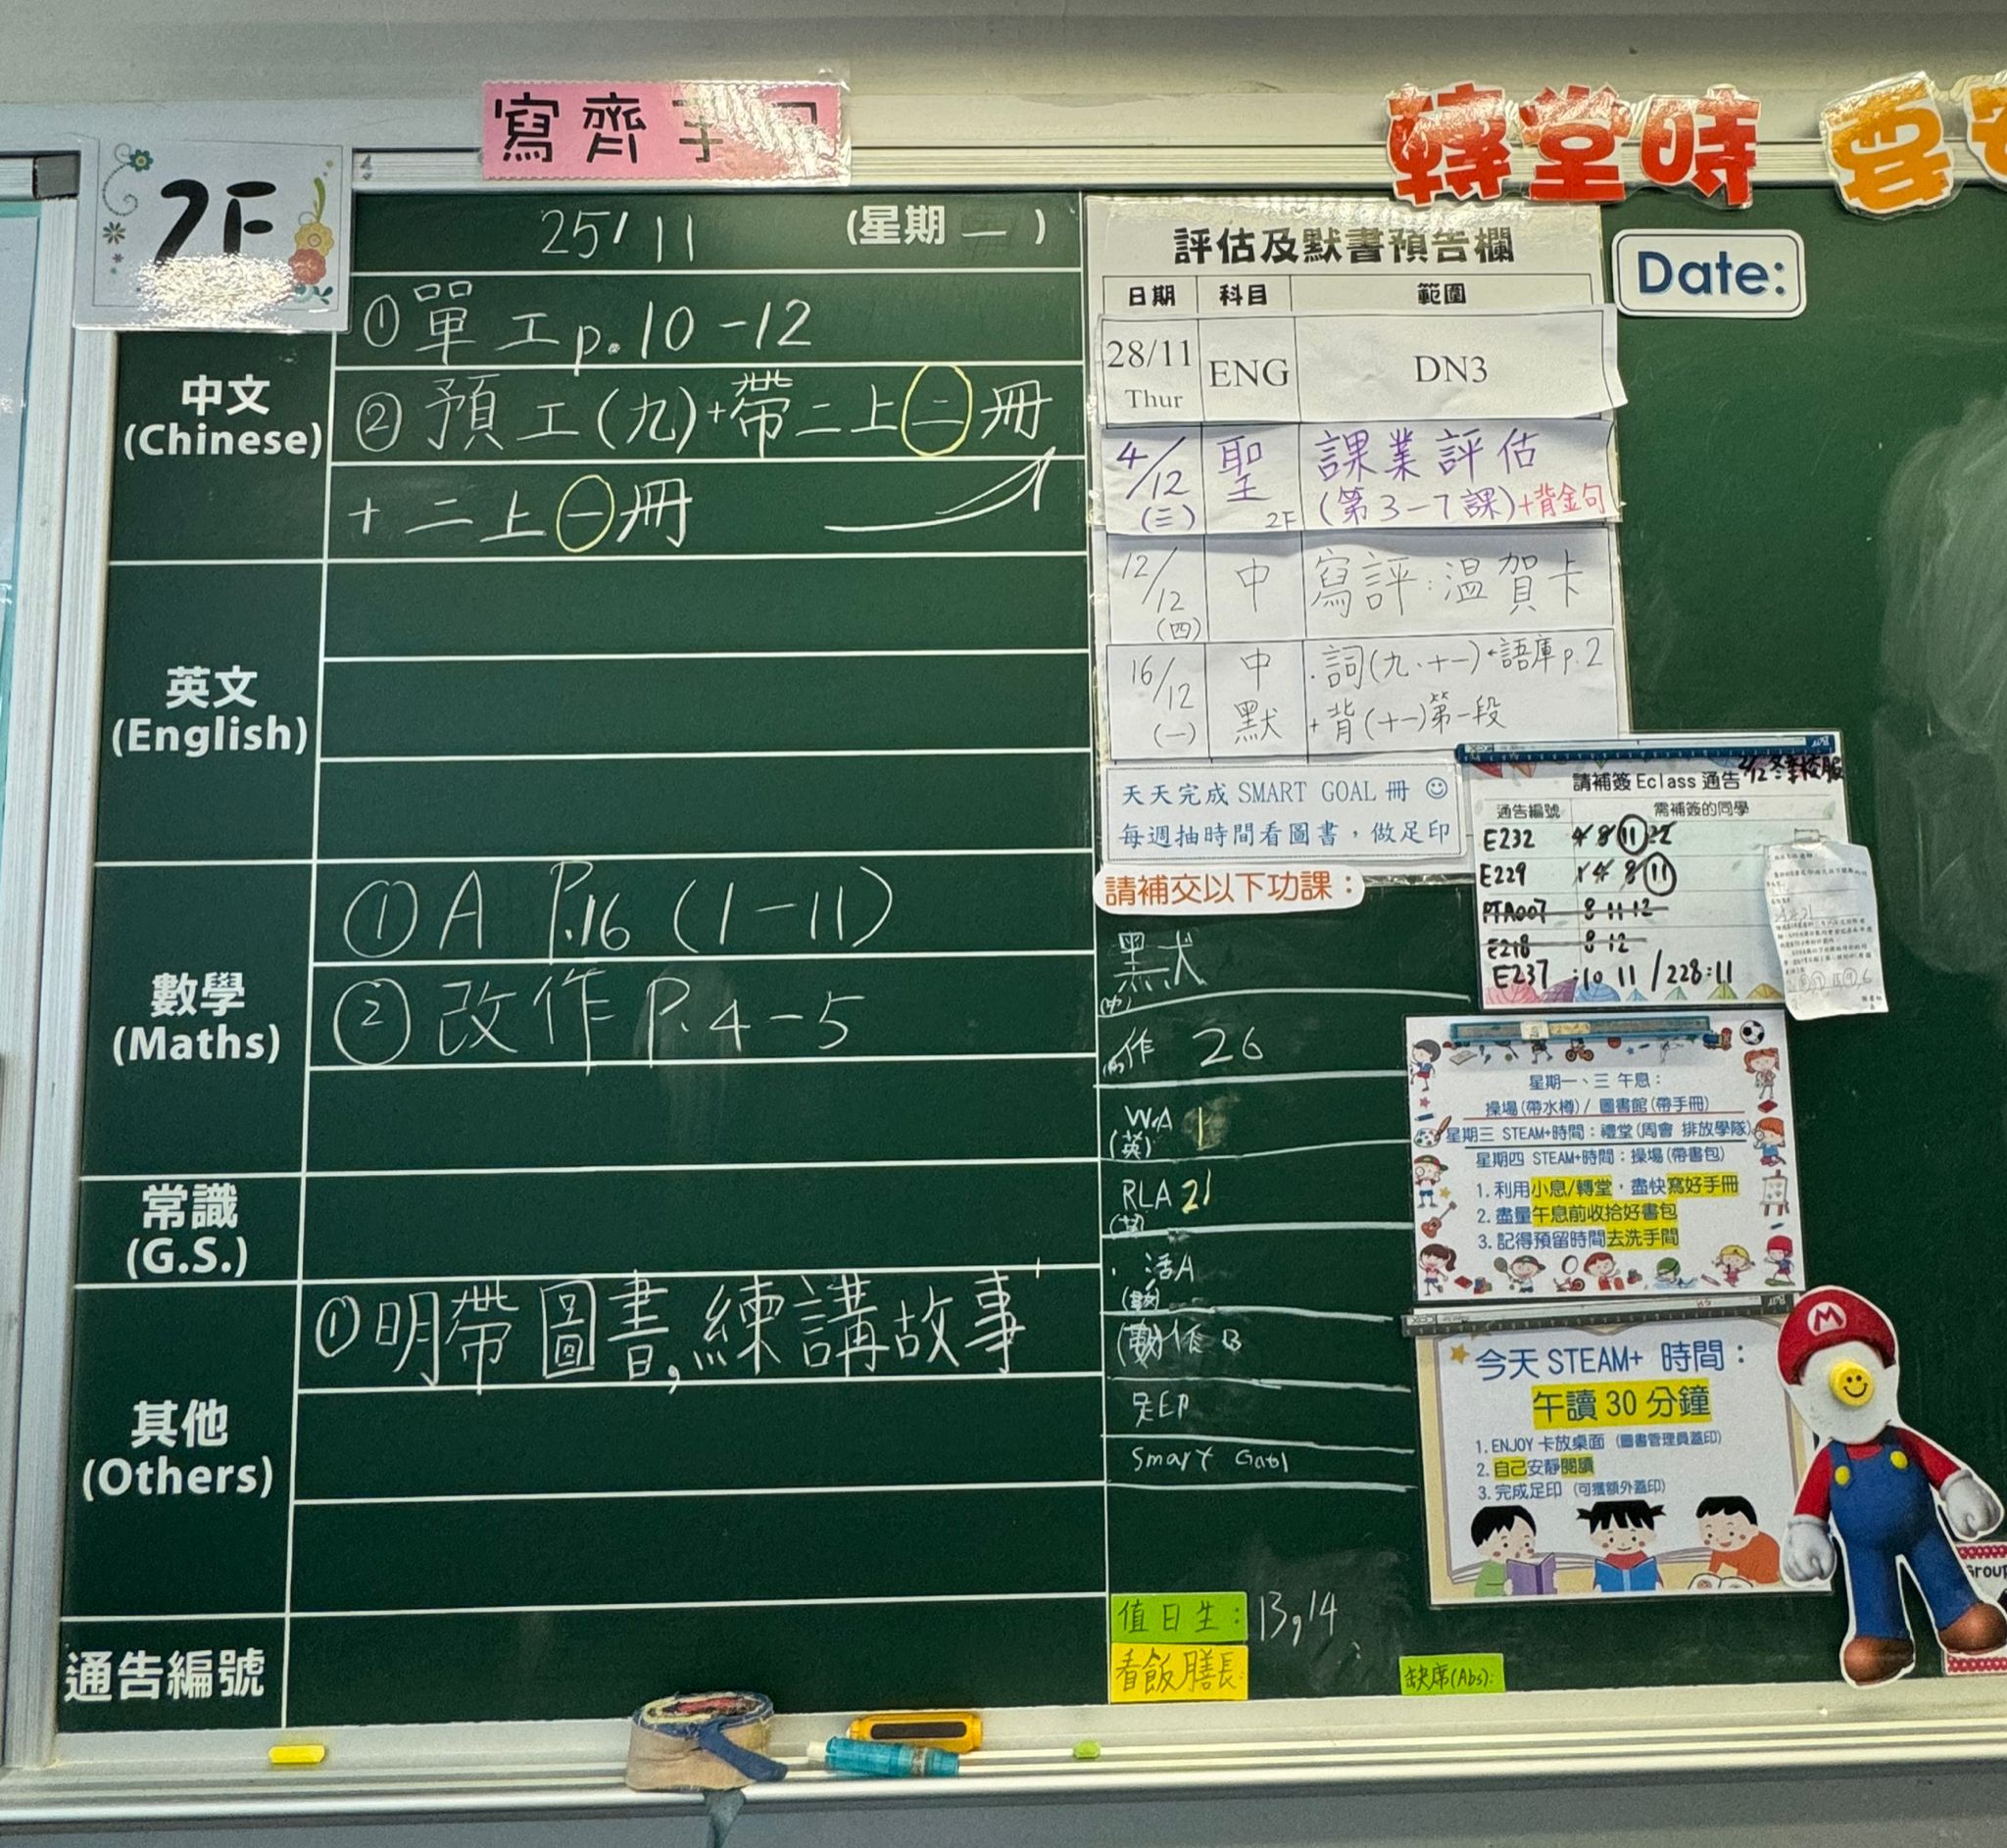 寫齊手
轉堂時 要
2F
25/11 (星期一)
中文
(Chinese)
①單工p.10-12
②預工(九)+帶二上二冊
+二上一冊
英文
(English)
數學
(Maths)
① A P.16 (1-11)
② 改作 P.4-5
常識
(G.S.)
其他
(Others)
①明帶圖書,練講故事
通告編號
評估及默書預告欄
日期 科目 範圍
28/11 Thur ENG DN3
4/12 (三) 聖 2F 課業評估
(第3-7課)+背金句
12/12 (四) 中 寫評:温賀卡
16/12 (一) 中默 ·詞(九、十一)·語庫p.2
+背(十一)第一段
天天完成 SMART GOAL 冊
每週抽時間看圖書,做足印
請補交以下功課:
默
作 26
(英) W.A 1
RLA 21
活A
(數)
(數)作B
足印
Smart Goal
值日生: 13,14
看飯膳長
缺席(Abs):
Date:
請補簽 Eclass 通告 2/12冬季校服
通告編號 需補簽的同學
E232 4 8 11 22
E229 1 4 8 11
PTA007 8 11 12
E218 8 12
E237 :10 11 /228:11
星期一、三 午息:
操場(帶水樽)/ 圖書館(帶手冊)
星期三 STEAM+時間:禮堂(周會 排放學隊)
星期四 STEAM+時間:操場(帶書包)
1. 利用小息/轉堂,盡快寫好手冊
2. 盡量午息前收拾好書包
3. 記得預留時間去洗手間
今天 STEAM+ 時間:
午讀 30 分鐘
1. ENJOY 卡放桌面 (圖書管理員蓋印)
2. 自己安靜閱讀
3. 完成足印 (可獲額外蓋印)
M
Group